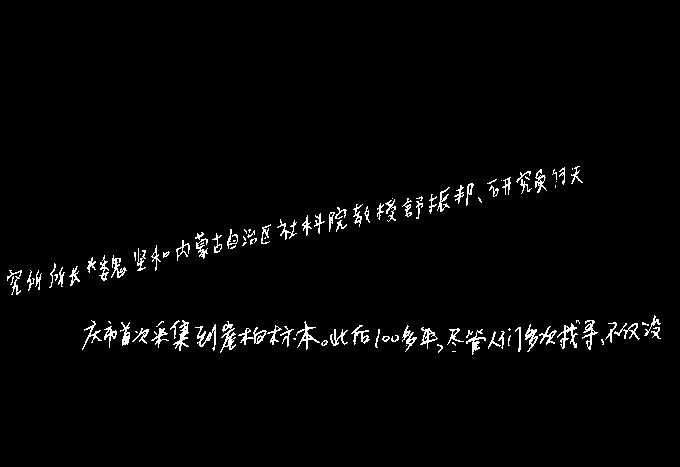 究所所长魏坚和内蒙古自治区社科院教授舒振邦、研究员何天
庆市首次采集到崖柏标本。此后100多年,尽管人们多次找寻,不仅没